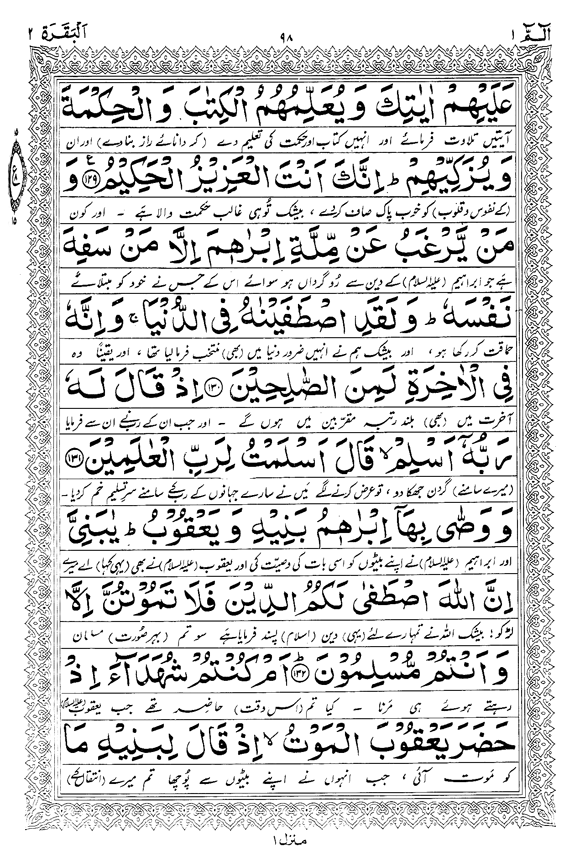 الٓمّٓ ١
٩٨
اَلْبَقَرَة ٢
عَلَيْهِمْ اٰيٰتِكَ وَ يُعَلِّمُهُمُ الْكِتٰبَ وَ الْحِكْمَةَ
آیتیں تلاوت فرمائے اور انہیں کتاب اور حکمت کی تعلیم دے (کہ دانائے راز بنا دے) اور ان
وَ يُزَكِّيْهِمْ ؕ اِنَّكَ اَنْتَ الْعَزِيْزُ الْحَكِيْمُ ﴿١٢٩﴾ وَ
(کے نفوس و قلوب) کو خوب پاک صاف کر دے، بیشک تُو ہی غالب حکمت والا ہے ۔ اور کون
مَنْ يَّرْغَبُ عَنْ مِّلَّةِ اِبْرٰهٖمَ اِلَّا مَنْ سَفِهَ
ہے جو ابراہیم (علیہ السلام) کے دین سے رُوگرداں ہو سوائے اس کے جس نے خود کو مبتلائے
نَفْسَهٗ ؕ وَ لَقَدِ اصْطَفَيْنٰهُ فِى الدُّنْيَا ۚ وَ اِنَّهٗ
حماقت کر رکھا ہو، اور بیشک ہم نے انہیں ضرور دنیا میں (بھی) منتخب فرما لیا تھا، اور یقیناً وہ
فِى الْاٰخِرَةِ لَمِنَ الصّٰلِحِيْنَ ﴿١٣٠﴾ اِذْ قَالَ لَهٗ
آخرت میں (بھی) بلند رتبہ مقرّبین میں ہوں گے ۔ اور جب ان کے رب نے ان سے فرمایا
رَبُّهٗۤ اَسْلِمْ ۙ قَالَ اَسْلَمْتُ لِرَبِّ الْعٰلَمِيْنَ ﴿١٣١﴾
(میرے سامنے) گردن جھکا دو، تو عرض کرنے لگے میں نے سارے جہانوں کے رب کے سامنے سرِ تسلیم خم کر دیا ۔
وَ وَصّٰى بِهَاۤ اِبْرٰهٖمُ بَنِيْهِ وَ يَعْقُوْبُ ؕ يٰبَنِىَّ
اور ابراہیم (علیہ السلام) نے اپنے بیٹوں کو اسی بات کی وصیت کی اور یعقوب (علیہ السلام) نے بھی (یہی کہا) اے میرے
اِنَّ اللّٰهَ اصْطَفٰى لَكُمُ الدِّيْنَ فَلَا تَمُوْتُنَّ اِلَّا
لڑکو! بیشک اللہ نے تمہارے لئے (یہی) دین (اسلام) پسند فرمایا ہے سو تم (بہرصورت) مسلمان
وَ اَنْتُمْ مُّسْلِمُوْنَ ﴿١٣٢﴾ؕ اَمْ كُنْتُمْ شُهَدَآءَ اِذْ
رہتے ہوئے ہی مرنا ۔ کیا تم (اس وقت) حاضر تھے جب یعقوب (علیہ السلام)
حَضَرَ يَعْقُوْبَ الْمَوْتُ ۙ اِذْ قَالَ لِبَنِيْهِ مَا
کو موت آئی، جب انہوں نے اپنے بیٹوں سے پوچھا تم میرے (انتقال کے)
منزل ١